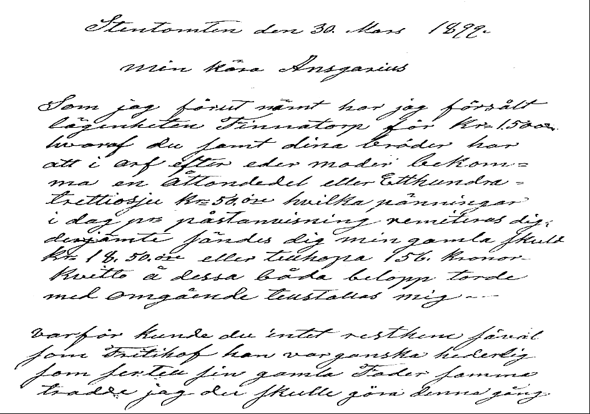 Stentomten den 30. Mars 1899.
Min kära Ansgarius
Som jag förut nämt har jag försålt
lägenheten Finnatorp för Kr 1.500
hvaraf du samt dina bröder har
att i arf efter eder moder bekom=
ma en Åttondedel eller Etthundra=
trettiosju Kr 50 öre hvilka pänningar
i dag pr påstanvisning remiteras dig;
desjämte sändes dig min gamla skuld
Kr 18,50 öre eller tiuhopa 156. kronor
Kvitto å dessa båda belopp torde
med omgående teustallas mig
varför kunde du intet resthem såväl
som Fritihof han var ganska hederlig
som sin gamla Fader samma
tradde jag du skulle göra denna gång